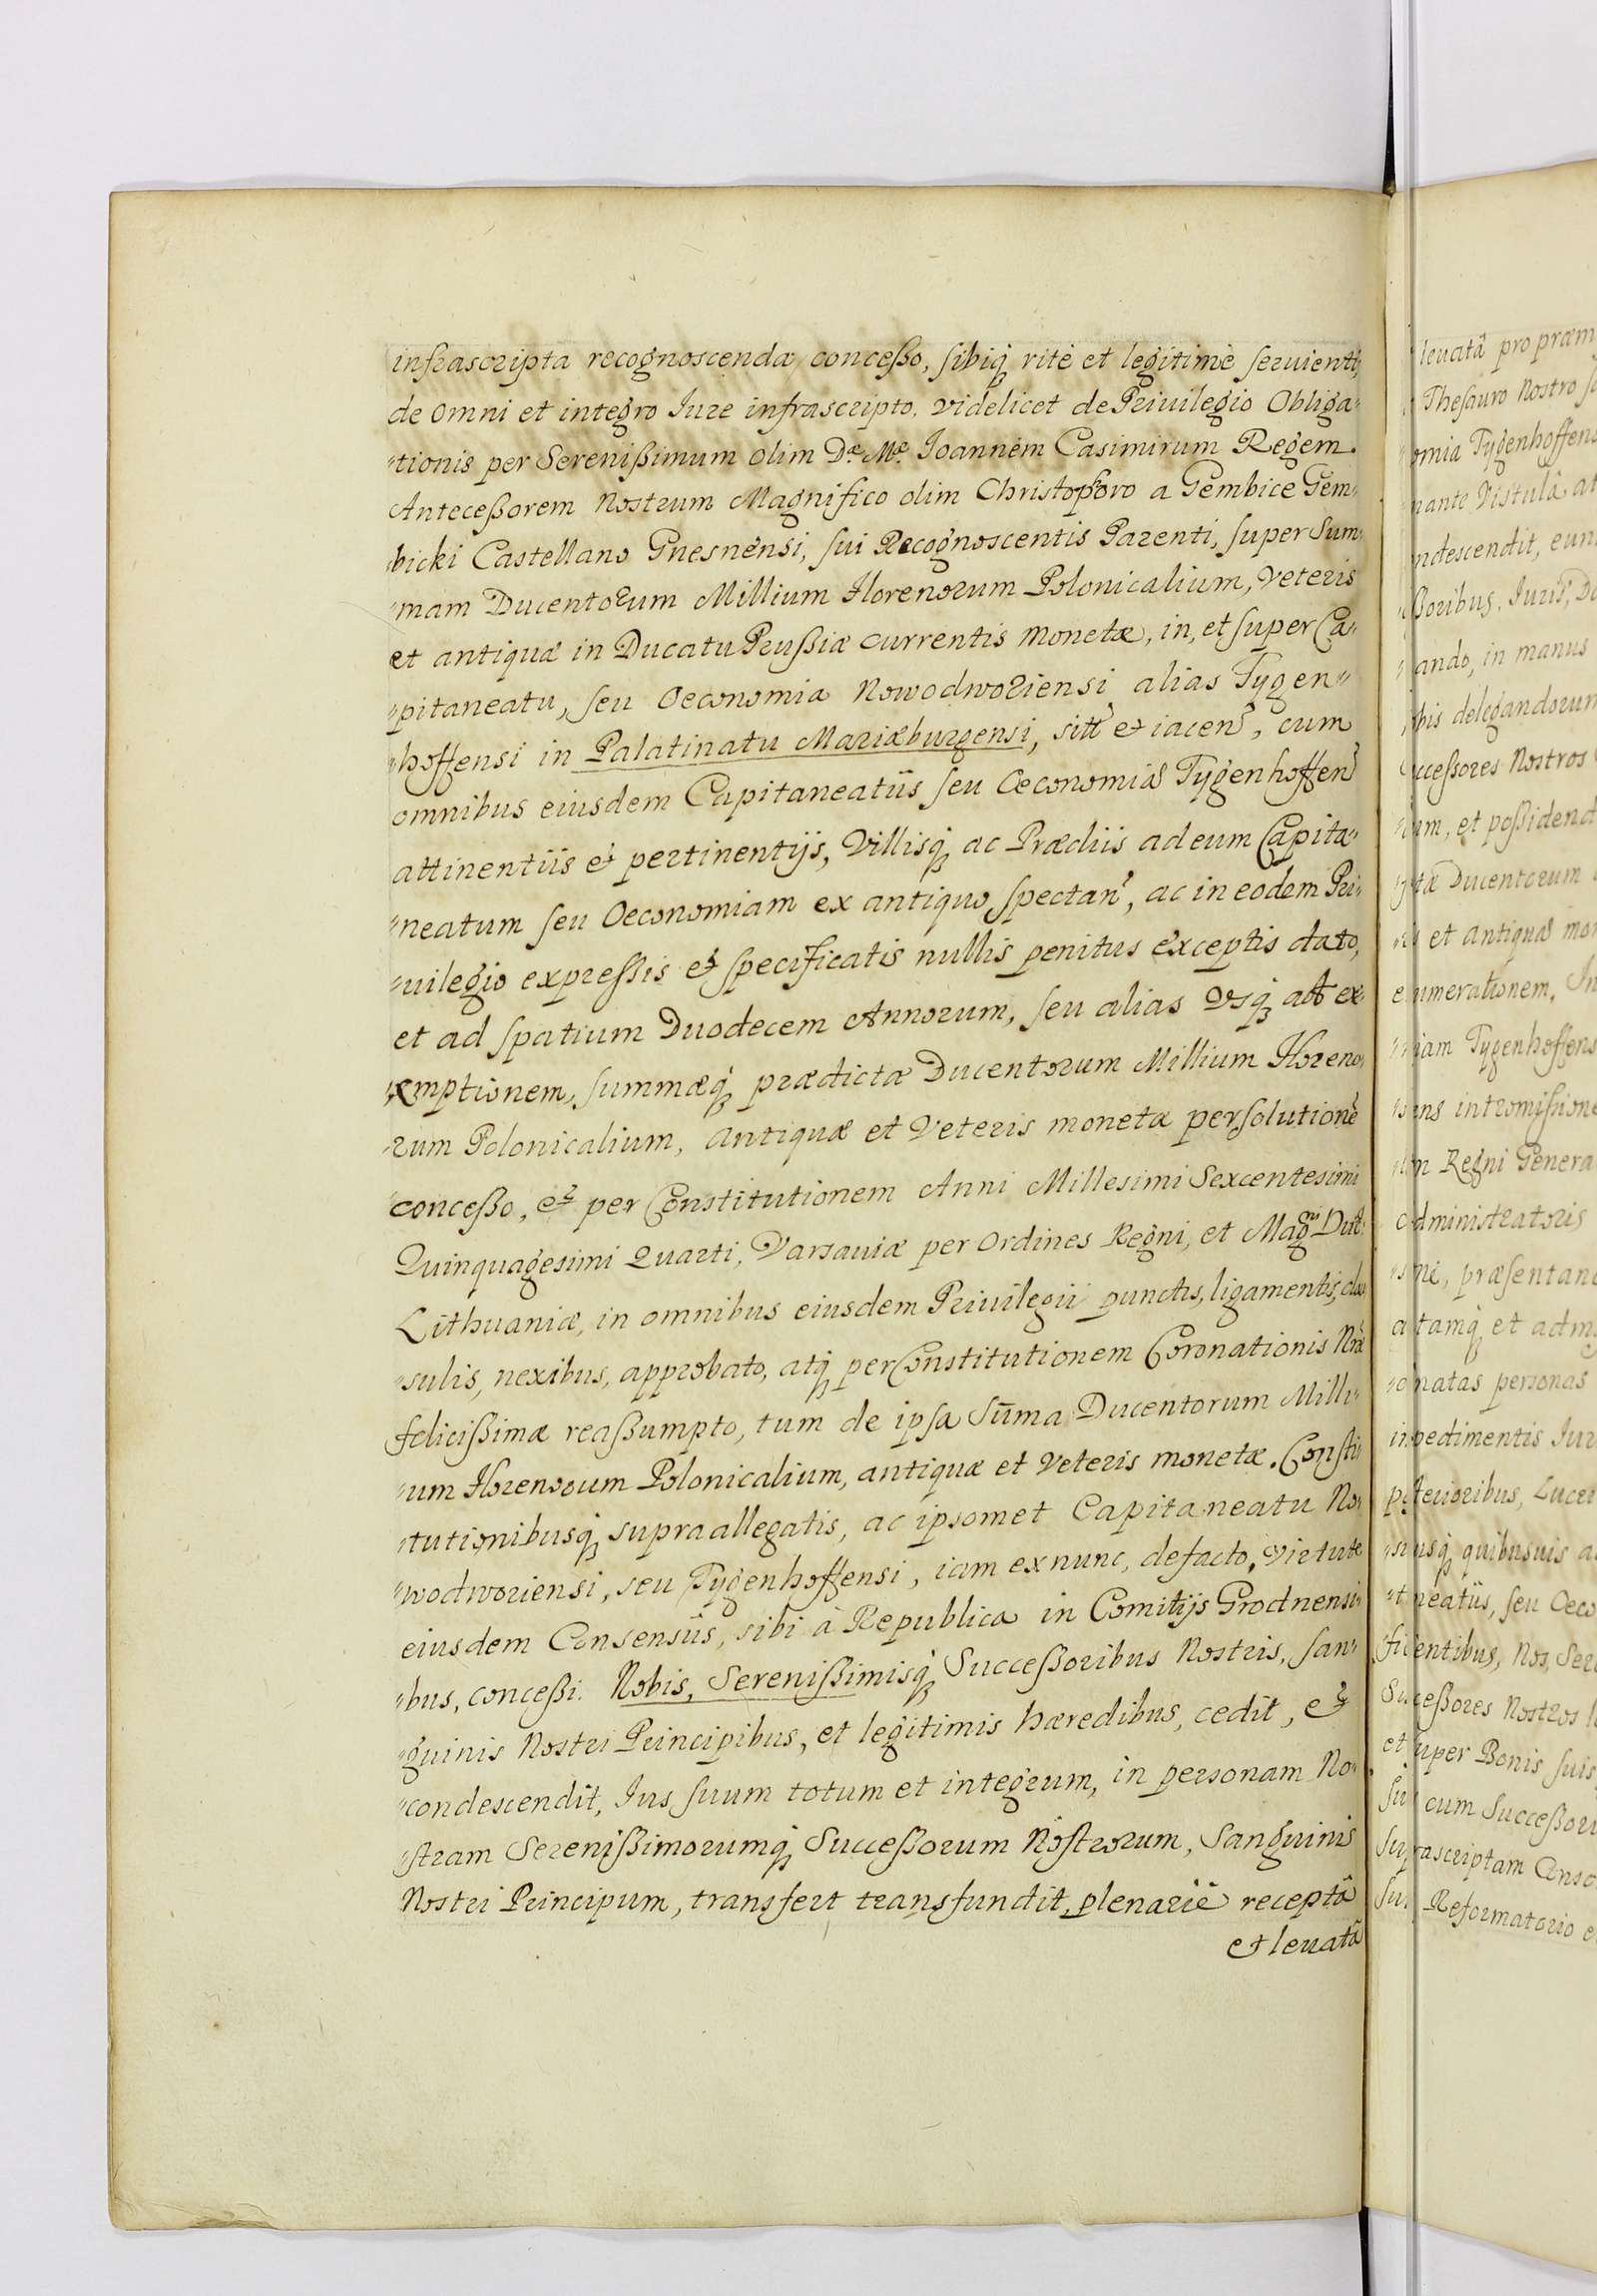 infrascripta recognoscenda concesso, sibiq; ritè et legitimè seruienti,
de omni et integro Iure infrascripto, videlicet de Priuilegio Obliga-
-tionis per Serenißimum olim Dæ Mæ Ioannem Casimirum Regem.
Anteceßorem Nostrum Magnifico olim Christophoro a Gembice Gem-
-bicki Castellano Gnesnensi, sui Recognoscentis Parenti, super Sum-
-mam Ducentorum Millium Florenorum Polonicalium, Veteris
et antiquæ in Ducatu Prußiæ currentis monetæ, in, et super Ca-
-pitaneatu, seu Oeconomia Nowodworiensi alias Tygen-
-hoffensi in Palatinatu Mariæburgensi, sitt et iacen, cum
omnibus eiusdem Capitaneatûs seu Oeconomiæ Tygenhoffen
attinentiis et pertinentijs, Villisq; ac Prædiis ad eum Capita-
-neatum seu Oeconomiam ex antiquo spectan, ac in eodem Pri-
-uilegio expressis et specificatis nullis penitus exceptis dato,
et ad spatium Duodecem Annorum, seu alias Vsq; ad ex-
-emptionem, summæq; prædictæ Ducentorum Millium Floreno-
-rum Polonicalium, antiquæ et Veteris monetæ persolutionē
concesso, et per Constitutionem Anni Millesimi Sexcentesimi
Quinquagesimi Quarti, Varsauiæ per Ordines Regni, et Magni Duc.
Lithuaniæ, in omnibus eiusdem Priuilegii punctis, ligamentis, clau
-sulis, nexibus, approbato, atq; per Constitutionem Coronationis Nræ
felicißimæ reaßumpto, tum de ipsa Sum̄a Ducentorum Milli-
-um Florenorum Polonicalium, antiquæ et Veteris monetæ. Consti-
-tutionibusq; supra allegatis, ac ipsomet Capitaneatu No-
-wodworiensi, seu Tygenhoffensi, iam ex nunc, de facto, virtute
eiusdem Consensûs, sibi à Republica in Comitijs Grodnensi-
-bus, conceßi. Nobis, Serenißimisq; Succeßoribus Nostris, San-
-guinis Nostri Principibus, et legitimis hæredibus, cedit, et
condescendit, Ius suum totum et integrum, in personam No-
-stram Serenißimorumq; Succeßorum Nostrorum, Sanguinis
Nostri Principum, transfert transfundit, plenariè receptâ
et leuatâ
leuatâ pro præm
Thesauro Nostro
omia Tygenhoffens
nante Vistulâ at
ndescendit, eun
ßoribus, Iuris,
ando, in manus
bis delegandorum
cceßores Nostros
um, et poßidend
tæ Ducentorum
et antiquæ mon
enumerationem, In
iam Tygenhoffens
ens intromißione
m Regni Genera
administratoris
ne, præsentand
tamq; et adm
natas personas
impedimentis Iur
posterioribus, Lucr
usq; quibusuis a
neatûs, seu Oeco
ficientibus, Nos, Sere
Succeßores Nostros
et super Bonis suis
cum Succeßori
suprascriptam Conso
Reformatorio e